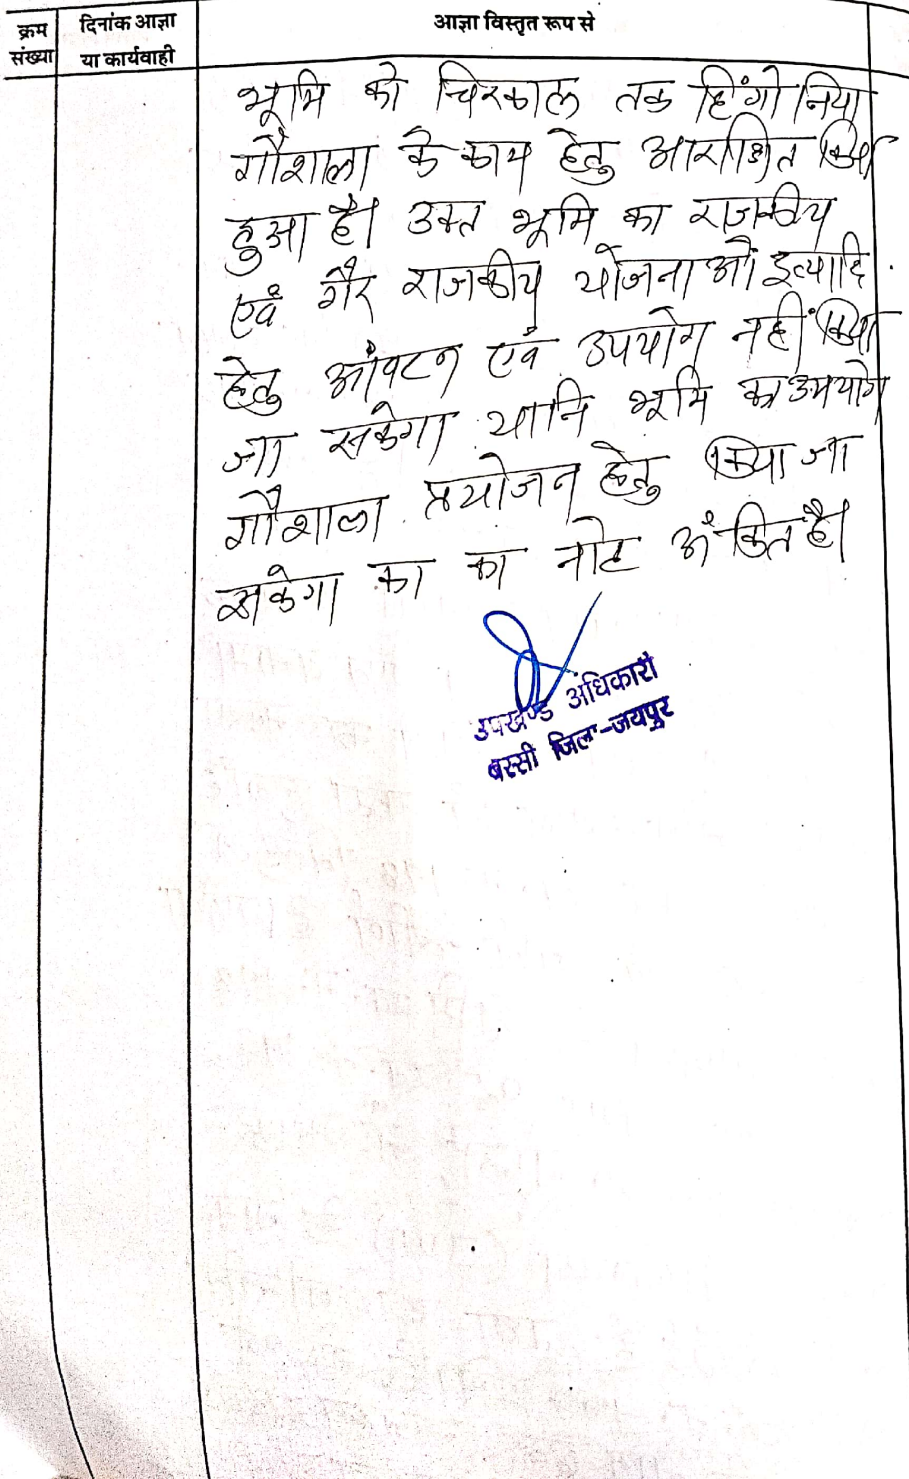 क्रम संख्या
दिनांक आज्ञा या कार्यवाही
आज्ञा विस्तृत रूप से
भूमि को चिरकाल तक हिंगोनिया
गौशाला के कार्य हेतु आरक्षित किया
हुआ है। उक्त भूमि का राजकीय
एवं गैर राजकीय योजनाओं इत्यादि
हेतु आंवटन एवं उपयोग नहीं किया
जा सकेगा यानि भूमि का उपयोग
गौशाला प्रयोजन हेतु किया जा
सकेगा का का नोट अंकित है।
उपखण्ड अधिकारी
बस्सी जिला-जयपुर